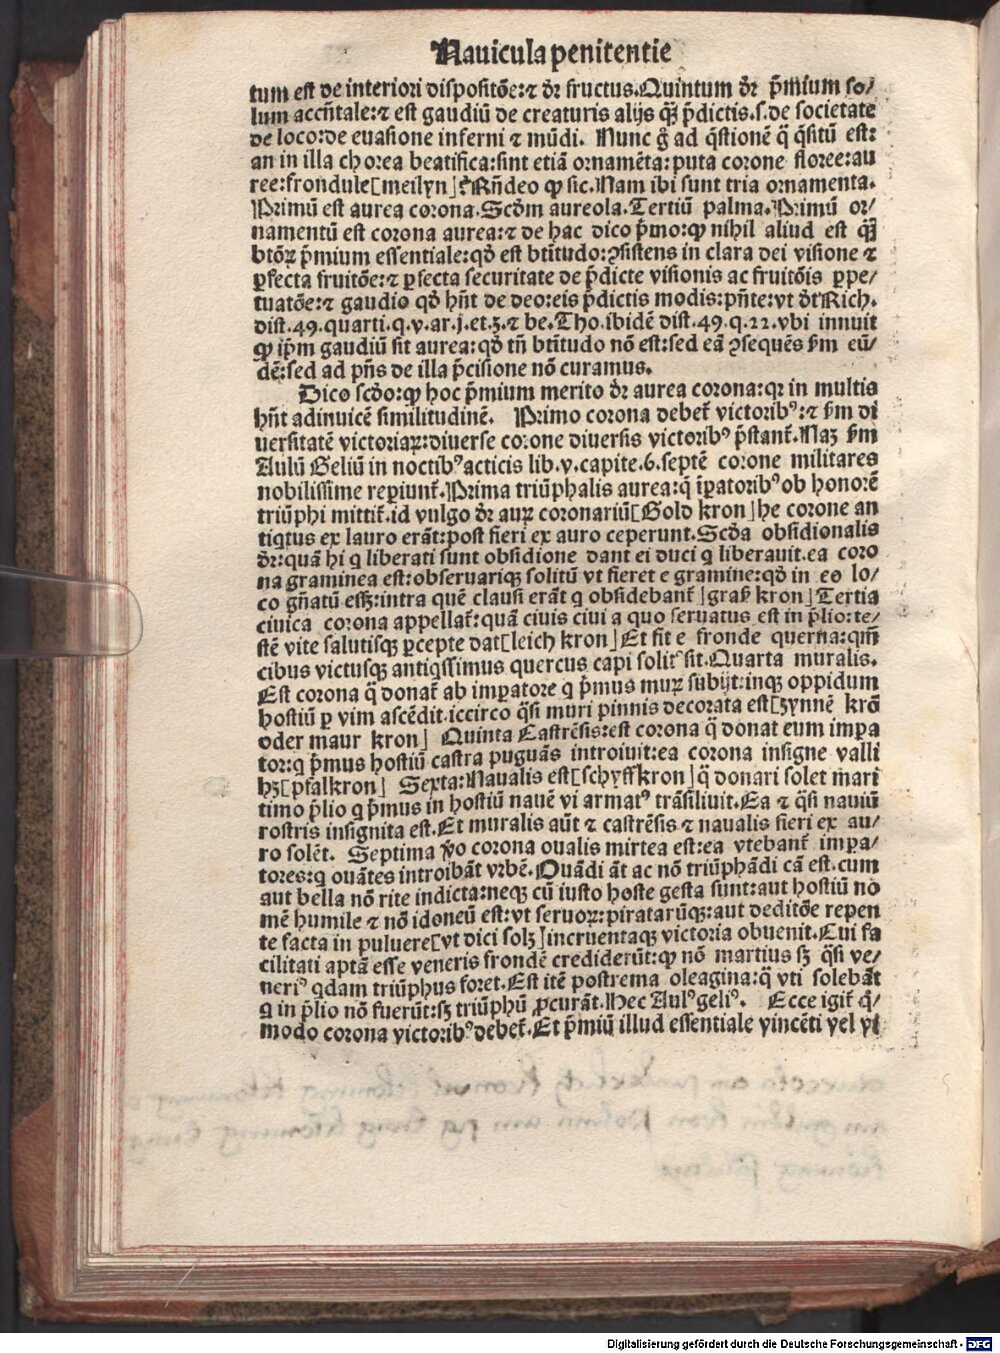 Nauicula penitentie
tum est de interiori dispositõe:⁊ dr̃ fructus.Quintum dr̃ p̃mium so/
lum accñtale:⁊ est gaudiũ de creaturis alijs qꝫ̃ p̃dictis.s.de societate
de loco:de euasione inferni ⁊ mũdi. Nunc g̃ ad q̃stionẽ q̃ q̃sitũ est:
an in illa chorea beatifica:sint etiã ornamẽta:puta corone floree:au
ree:frondule[meilyn]⁊ Rñdeo ꝙ sic.Nam ibi sunt tria ornamenta.
Primũ est aurea corona.Scd̃m aureola.Tertiũ palma.Primũ or/
namentũ est corona aurea:⁊ de hac dico p̃mo:ꝙ nihil aliud est qꝫ̃
btõꝝ p̃mium essentiale:qd̃ est btĩtudo:ꝯsistens in clara dei visione ⁊
ꝑfecta fruitõe:⁊ ꝑfecta securitate de p̃dicte visionis ac fruitõis ꝑpe/
tuatõe:⁊ gaudio qd̃ hñt de deo:eis p̃dictis modis:pñte:vt dt̃ Rich.
dist.49.quarti.q.v.ar.j.et.3.⁊ be.Tho.ibidẽ dist.49.q.22.vbi innuit
ꝙ ip̃m gaudiũ sit aurea:qd̃ tñ btĩtudo nõ est:sed eã ꝯsequẽs s̃m eũ/
dẽ:sed ad pñs de illa p̃cisione nõ curamus.
Dico scd̃o:ꝙ hoc p̃mium merito dr̃ aurea corona:qꝛ in multis
hñt adinuicẽ similitudinẽ. Primo corona debet̃ victoribꝰ:⁊ s̃m di
uersitatẽ victoriaꝝ:diuerse corone diuersis victoribꝰ p̃stant̃.Naꝫ s̃m
Aulũ Geliũ in noctibꝰ acticis lib.v.capite.6.septẽ corone militares
nobilissime reꝑiunt̃.Prima triũphalis aurea:q̃ ip̃atoribꝰ ob honorẽ
triũphi mittit̃.id vulgo dr̃ auꝝ coronariũ[Gold kron]he corone an
tiqtus ex lauro erãt:post fieri ex auro ceperunt.Scd̃a obsidionalis
dr̃:quã hi q liberati sunt obsidione dant ei duci q liberauit.ea coro
na graminea est:obseruariqꝫ solitũ vt fieret e gramine:qd̃ in eo lo/
co gñatũ eẜꝫ:intra quẽ clausi erãt q obsidebant̃[graß kron]Tertia
ciuica corona appellat̃:quã ciuis ciui a quo seruatus est in p̃lio:te/
stẽ vite salutisqꝫ ꝑcepte dat[leich kron]Et fit e fronde querna:qm̃
cibus victusqꝫ antiqssimus quercus capi solit sit.Quarta muralis.
Est corona q̃ donat̃ ab imꝑatore q p̃mus muꝝ subijt:inqꝫ oppidum
hostiũ ꝑ vim ascẽdit.iccirco q̃si muri pinnis decorata est[zynnẽ krõ
oder maur kron] Quinta Castrẽsis:est corona q̃ donat eum imꝑa
tor:q p̃mus hostiũ castra puguãs introiuit:ea corona insigne valli
hꝫ[pfalkron] Sexta:Naualis est[schyffkron]q̃ donari solet mari
timo p̃lio q p̃mus in hostiũ nauẽ vi armatꝰ trãsiliuit.Ea ⁊ q̃si nauiũ
rostris insignita est.Et muralis aũt ⁊ castrẽsis ⁊ naualis fieri ex au/
ro solẽt. Septima ṽo corona oualis mirtea est:ea vtebant̃ imꝑa/
tores:q ouãtes introibãt vrbẽ.Ouãdi ãt ac nõ triũphãdi cã est.cum
aut bella nõ rite indicta:neqꝫ cũ iusto hoste gesta sunt:aut hostiũ no
mẽ humile ⁊ nõ idoneũ est:vt seruoꝝ:piratarũqꝫ:aut deditõe repen
te facta in puluere[vt dici solꝫ]incruentaqꝫ victoria obuenit.Cui fa
cilitati aptã esse veneris frondẽ crediderũt:ꝙ nõ martius sꝫ q̃si ve/
neriꝰ qdam triũphus foret.Est itẽ postrema oleagina:q̃ vti solebãt
q in p̃lio nõ fuerũt:sꝫ triũphũ ꝓcurãt.Hec Aulꝰ geliꝰ. Ecce igit̃ q̃/
modo corona victoribꝰ debet̃.Et p̃miũ illud essentiale vincẽti vel vi
Digitalisierung gefördert durch die Deutsche Forschungsgemeinschaft - DFG